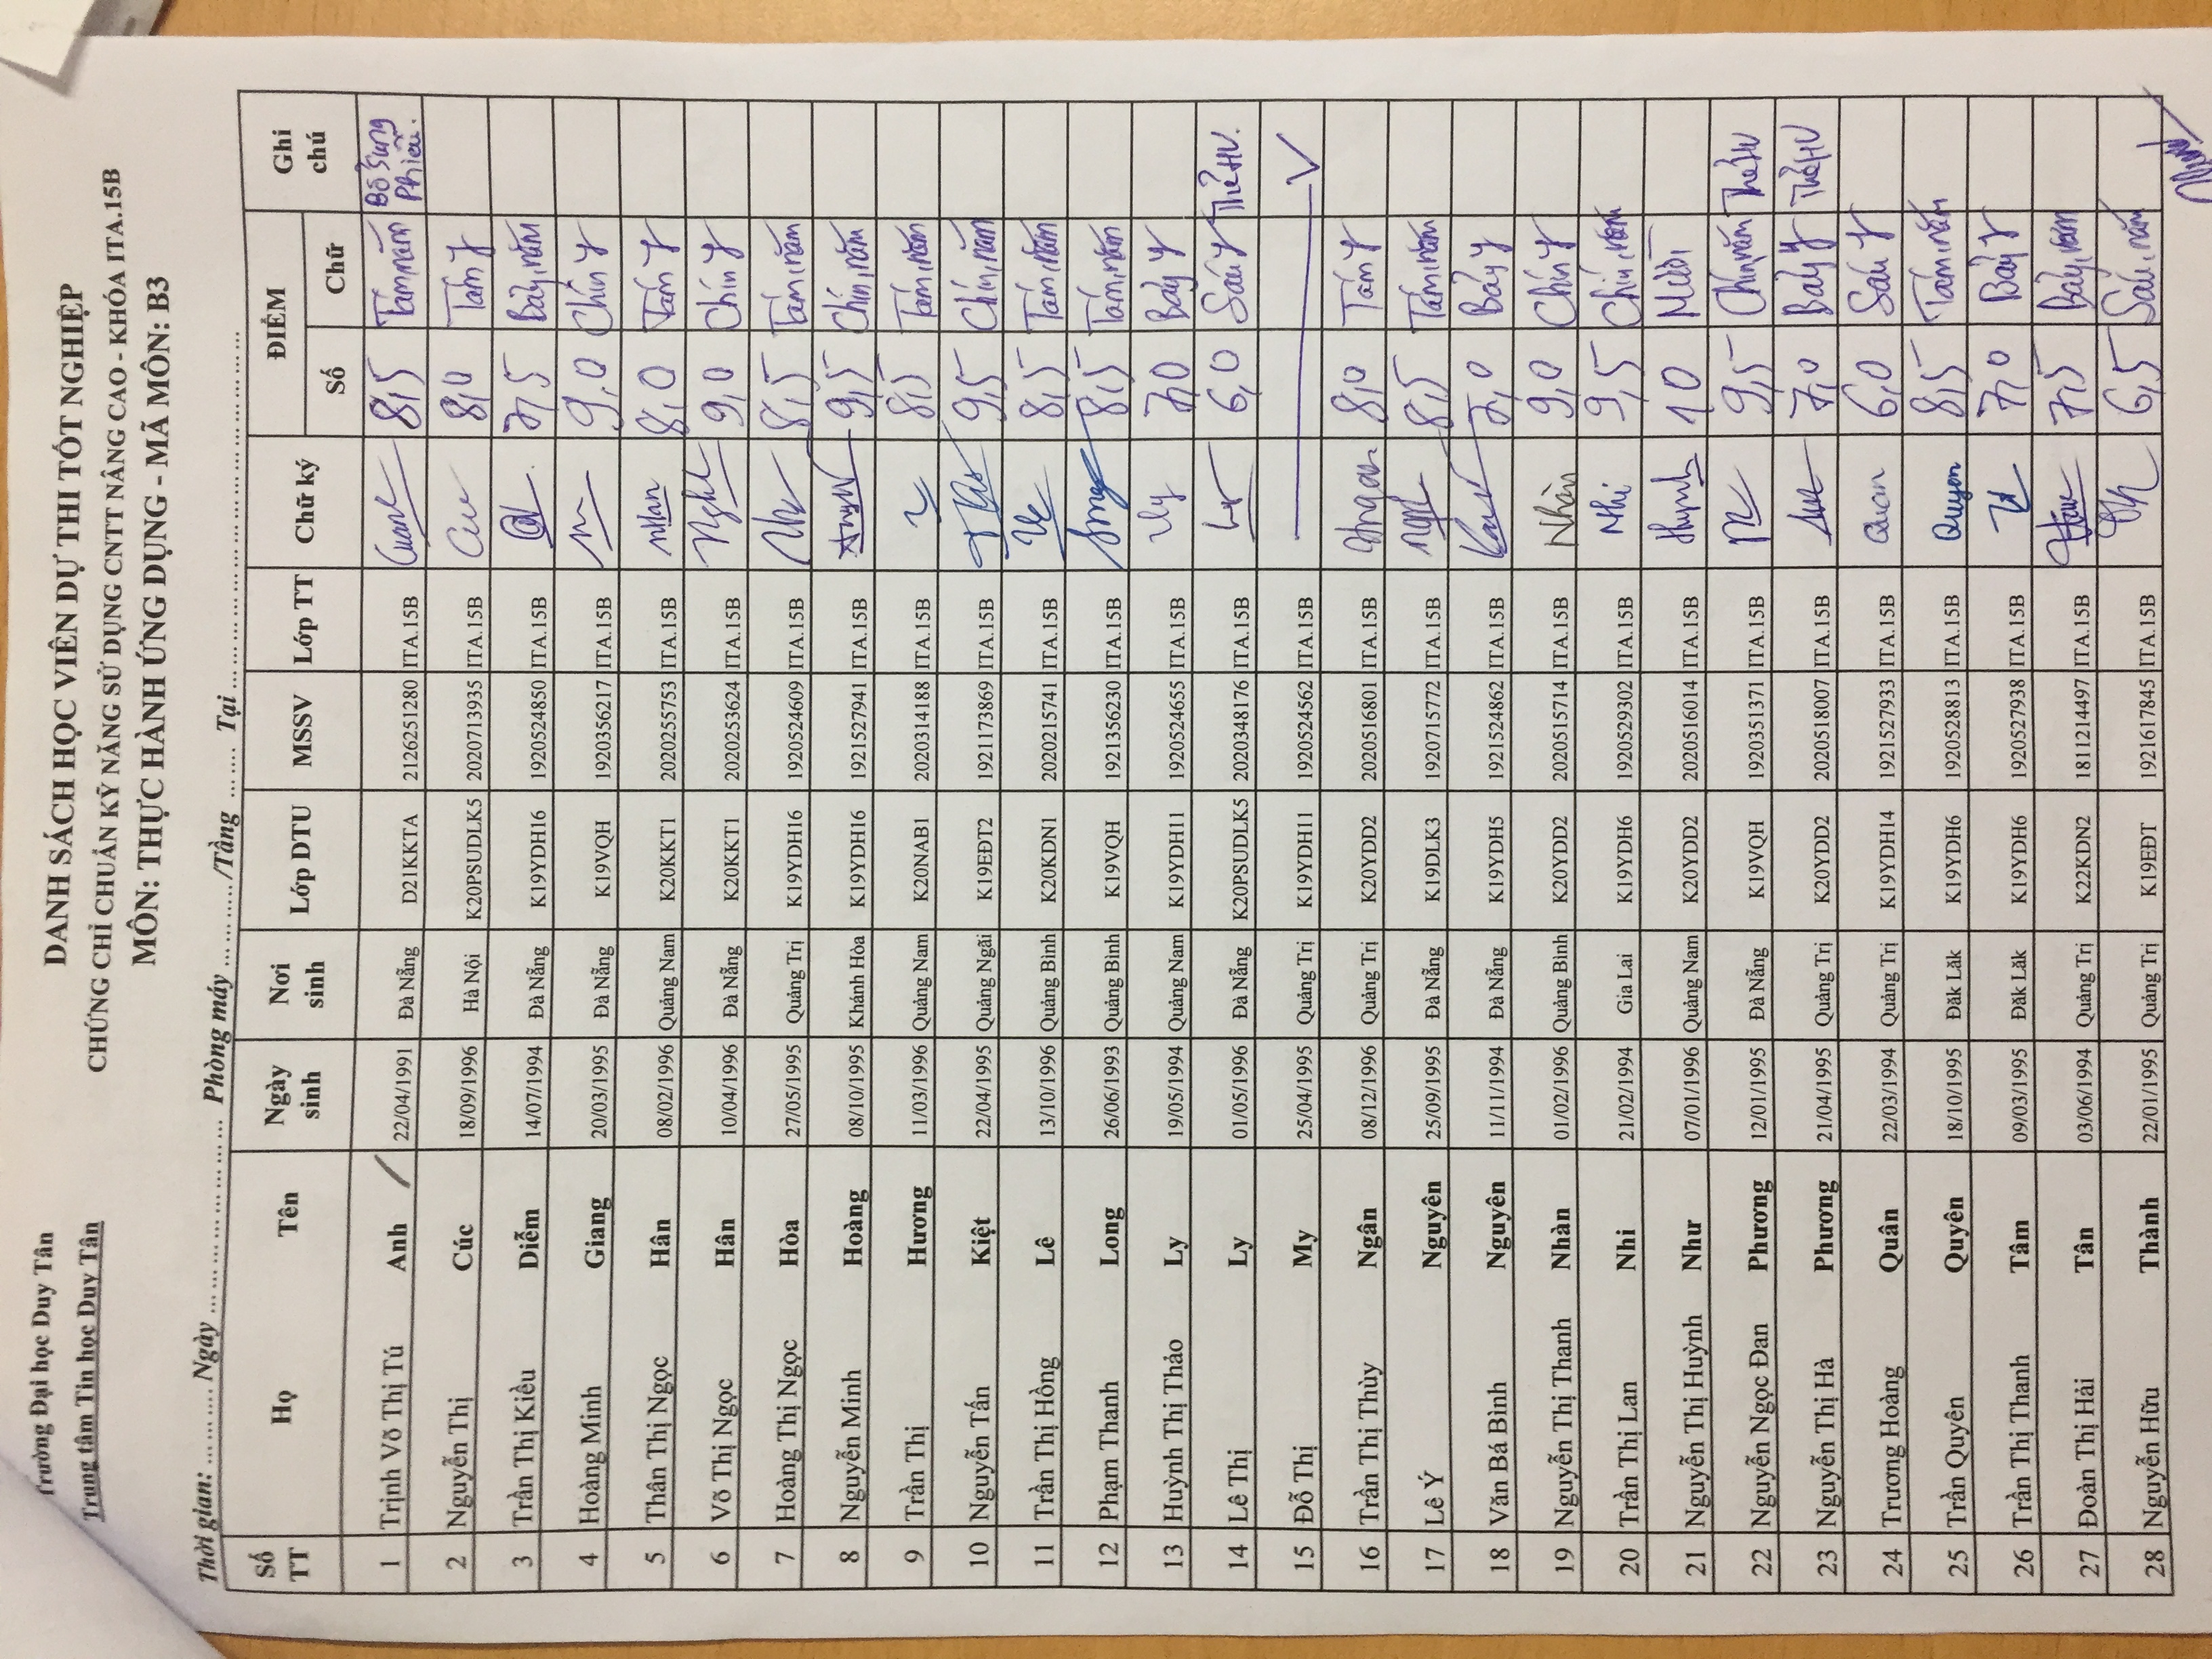 Trường Đại học Duy Tân
Trung tâm Tin học Duy Tân
DANH SÁCH HỌC VIÊN DỰ THI TỐT NGHIỆP
CHỨNG CHỈ CHUẨN KỸ NĂNG SỬ DỤNG CNTT NÂNG CAO - KHÓA ITA.15B
MÔN: THỰC HÀNH ỨNG DỤNG - MÃ MÔN: B3
Thời gian: ............ Ngày ........................ Phòng máy ............/Tầng ...... Tại ..........................................
Số TT Họ Tên Ngày sinh Nơi sinh Lớp DTU MSSV Lớp TT Chữ ký ĐIỂM Số Chữ Ghi chú
1 Trịnh Võ Thị Tú Anh 22/04/1991 Đà Nẵng D21KKTA 2126251280 ITA.15B 8,5 Tám,năm Bổ sung Phiếu.
2 Nguyễn Thị Cúc 18/09/1996 Hà Nội K20PSUDLK5 2020713935 ITA.15B Cuc 8,0 Tám y
3 Trần Thị Kiều Diễm 14/07/1994 Đà Nẵng K19YDH16 1920524850 ITA.15B 7,5 Bảy,năm
4 Hoàng Minh Giang 20/03/1995 Đà Nẵng K19VQH 1920356217 ITA.15B 9,0 Chín y
5 Thân Thị Ngọc Hân 08/02/1996 Quảng Nam K20KKT1 2020255753 ITA.15B Hân 8,0 Tám y
6 Võ Thị Ngọc Hân 10/04/1996 Đà Nẵng K20KKT1 2020253624 ITA.15B 9,0 Chín y
7 Hoàng Thị Ngọc Hòa 27/05/1995 Quảng Trị K19YDH16 1920524609 ITA.15B 8,5 Tám,năm
8 Nguyễn Minh Hoàng 08/10/1995 Khánh Hòa K19YDH16 1921527941 ITA.15B 9,5 Chín,năm
9 Trần Thị Hương 11/03/1996 Quảng Nam K20NAB1 2020314188 ITA.15B 8,5 Tám,năm
10 Nguyễn Tấn Kiệt 22/04/1995 Quảng Ngãi K19EĐT2 1921173869 ITA.15B 9,5 Chín,năm
11 Trần Thị Hồng Lê 13/10/1996 Quảng Bình K20KDN1 2020215741 ITA.15B 8,5 Tám,năm
12 Phạm Thanh Long 26/06/1993 Quảng Bình K19VQH 1921356230 ITA.15B 8,5 Tám,năm
13 Huỳnh Thị Thảo Ly 19/05/1994 Quảng Nam K19YDH11 1920524655 ITA.15B Ly 7,0 Bảy y
14 Lê Thị Ly 01/05/1996 Đà Nẵng K20PSUDLK5 2020348176 ITA.15B Ly 6,0 Sáu y Thẻ HV.
15 Đỗ Thị My 25/04/1995 Quảng Trị K19YDH11 1920524562 ITA.15B V
16 Trần Thị Thùy Ngân 08/12/1996 Quảng Trị K20YDD2 2020516801 ITA.15B Ngan 8,0 Tám y
17 Lê Ý Nguyên 25/09/1995 Đà Nẵng K19DLK3 1920715772 ITA.15B 8,5 Tám,năm
18 Văn Bá Bình Nguyên 11/11/1994 Đà Nẵng K19YDH5 1921524862 ITA.15B 7,0 Bảy y
19 Nguyễn Thị Thanh Nhàn 01/02/1996 Quảng Bình K20YDD2 2020515714 ITA.15B Nhàn 9,0 Chín y
20 Trần Thị Lan Nhi 21/02/1994 Gia Lai K19YDH6 1920529302 ITA.15B Nhi 9,5 Chín,năm
21 Nguyễn Thị Huỳnh Như 07/01/1996 Quảng Nam K20YDD2 2020516014 ITA.15B Huỳnh 10 Mười
22 Nguyễn Ngọc Đan Phương 12/01/1995 Đà Nẵng K19VQH 1920351371 ITA.15B 9,5 Chín,năm Thẻ HV
23 Nguyễn Thị Hà Phương 21/04/1995 Quảng Trị K20YDD2 2020518007 ITA.15B 7,0 Bảy y Thẻ HV
24 Trương Hoàng Quân 22/03/1994 Quảng Trị K19YDH14 1921527933 ITA.15B Quan 6,0 Sáu y
25 Trần Quyên Quyên 18/10/1995 Đăk Lăk K19YDH6 1920528813 ITA.15B Quyen 8,5 Tám,năm
26 Trần Thị Thanh Tâm 09/03/1995 Đăk Lăk K19YDH6 1920527938 ITA.15B 7,0 Bảy y
27 Đoàn Thị Hải Tân 03/06/1994 Quảng Trị K22KDN2 1811214497 ITA.15B 7,5 Bảy,năm
28 Nguyễn Hữu Thành 22/01/1995 Quảng Trị K19EĐT 1921617845 ITA.15B 6,5 Sáu,năm